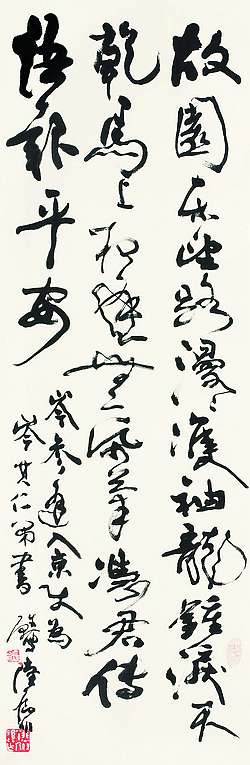 故園東望路漫々雙袖龍鐘淚不
乾馬上相逢無紙筆憑君傳
語報平安
岑參逢入京使為
岑其仁弟書